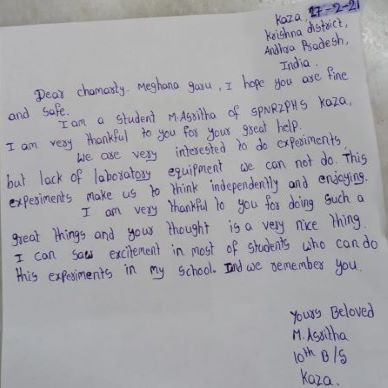 Kaza, 27-2-21
Krishna district,
Andhra Pradesh,
India.
Dear chamarty. Meghana garu, I hope you are fine
and safe.
I am a student M.Asritha of SPNRZPHS Kaza,
I am very thankful to you for your great help.
We are very interested to do experiments,
but lack of laboratory equipment we can not do. This
experiments make us to think independently and enjoying.
I am very thankful to you for doing such a
great things and your thought is a very nice thing.
I can saw excitement in most of students who can do
this experiments in my school. And we remember you.
Yours Beloved
M. Asritha
10th B/S
Kaza.